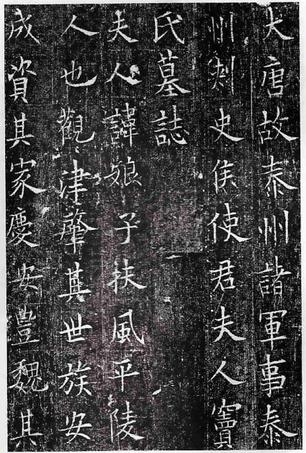 大唐故泰州諸軍事泰
州刾史侯使君夫人竇
氏墓誌
夫人諱娘子扶風平陵
人也觀津肇其世族安
成資其家慶安豐魏其